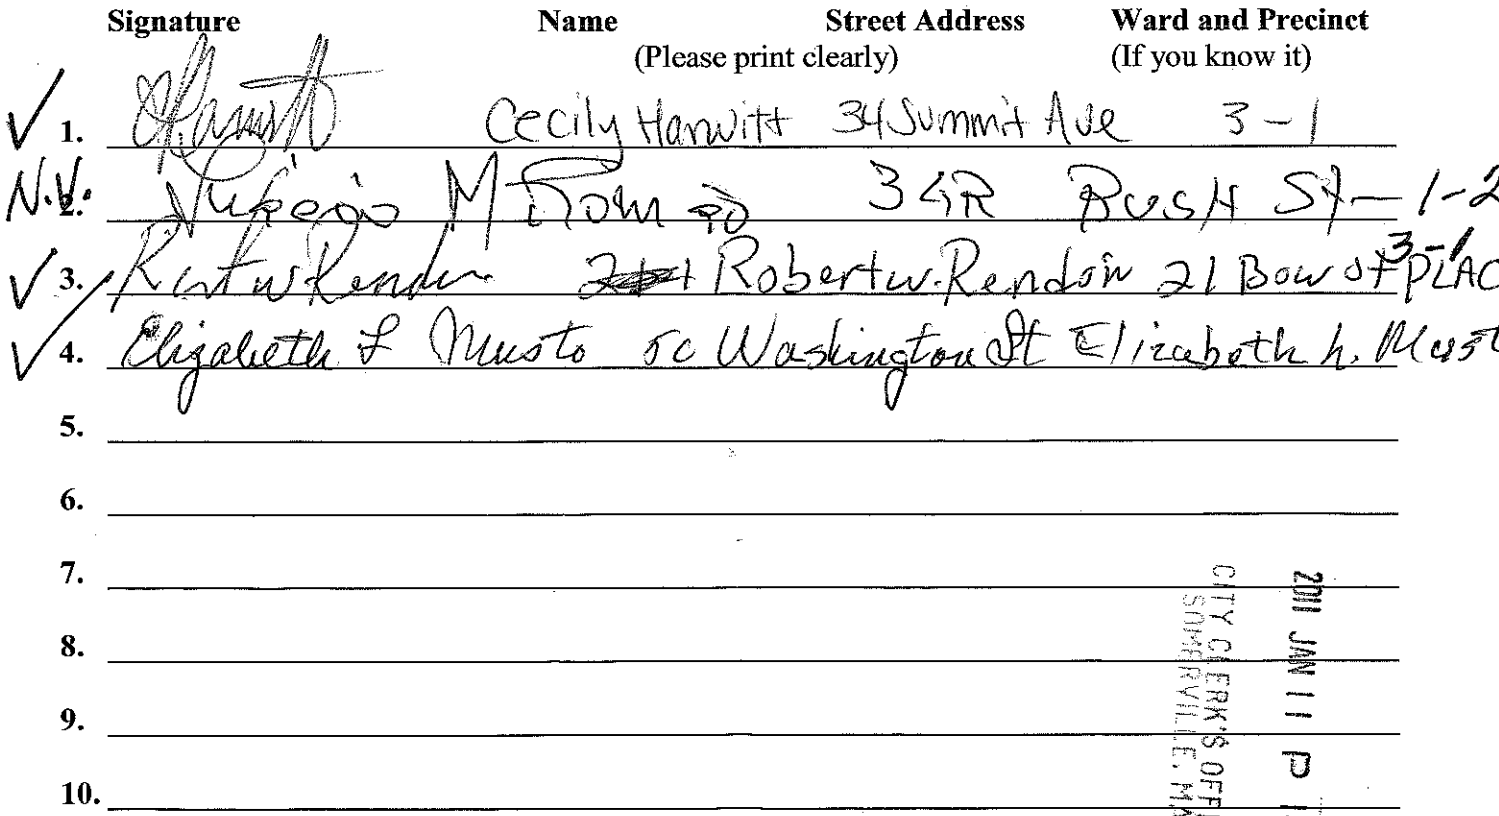 Signature Name Street Address Ward and Precinct
(Please print clearly) (If you know it)
✓ 1. Cecily Hanwitt 34 Summit Ave 3-1
N.V. 2. M Romão 34R Bush St - 1-2
✓ 3. Robert W. Rendon 21 Bow St PLAC 3-1
✓ 4. Elizabeth L Musto 5c Washington St Elizabeth L. Must
5.
6.
7.
8.
9.
10.
2011 JAN 11 P 1
CITY CLERK'S OFFI
SOMERVILLE, MA